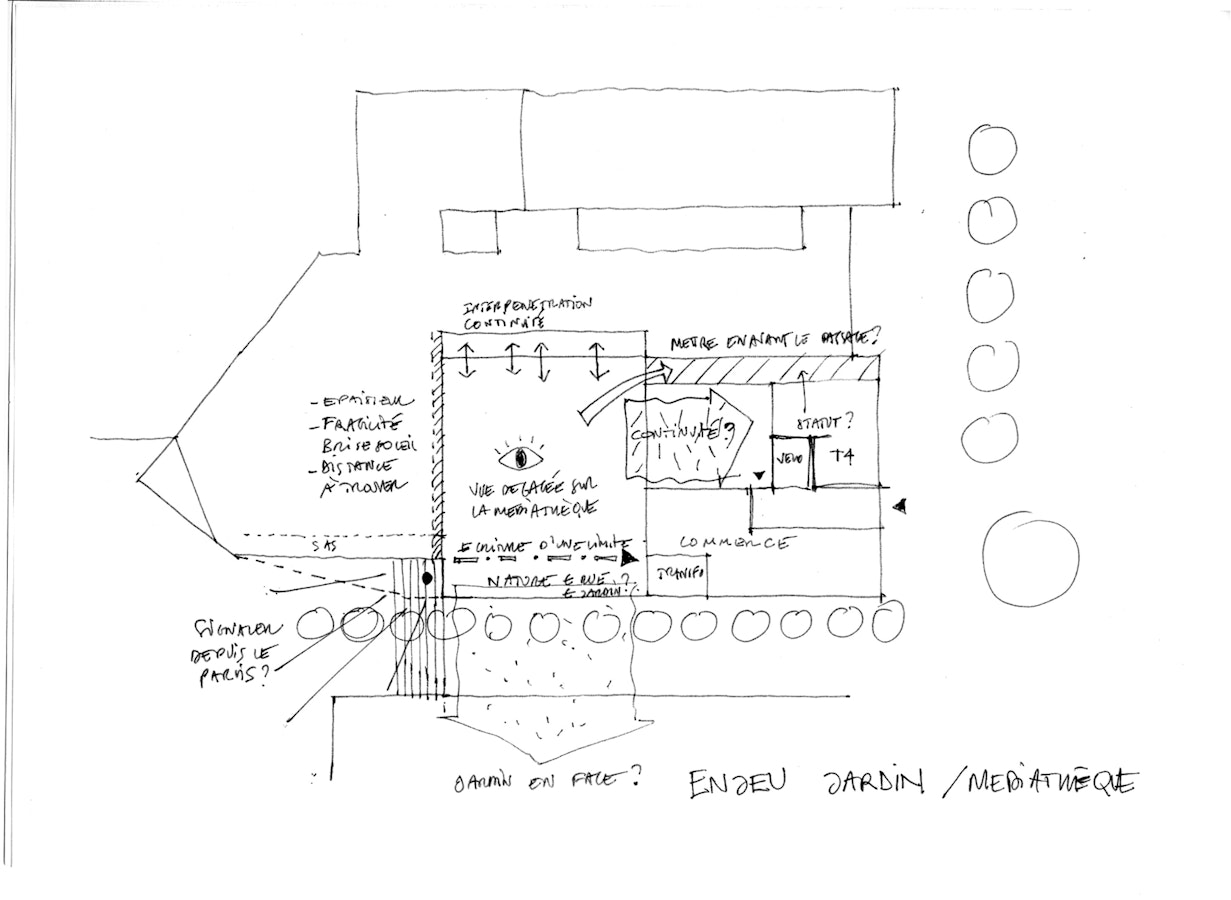 INTERPENETRATION
CONTINUITÉ
METTRE EN AVANT LE PASSAGE?
- EPAISSEUR
- FRAGILITÉ
BRISE SOLEIL
- DISTANCE
À TROUVER
CONTINUITÉ?
STATUT?
VELO
T4
VUE DEGAGÉE SUR
LA MEDIATHÈQUE
SAS
D'UNE LIMITE
COMMERCE
NATURE RUE?
JARDIN?
TRANSFO
SIGNALER
DEPUIS LE
PARVIS?
JARDIN EN FACE?
ENJEU JARDIN / MEDIATHÈQUE